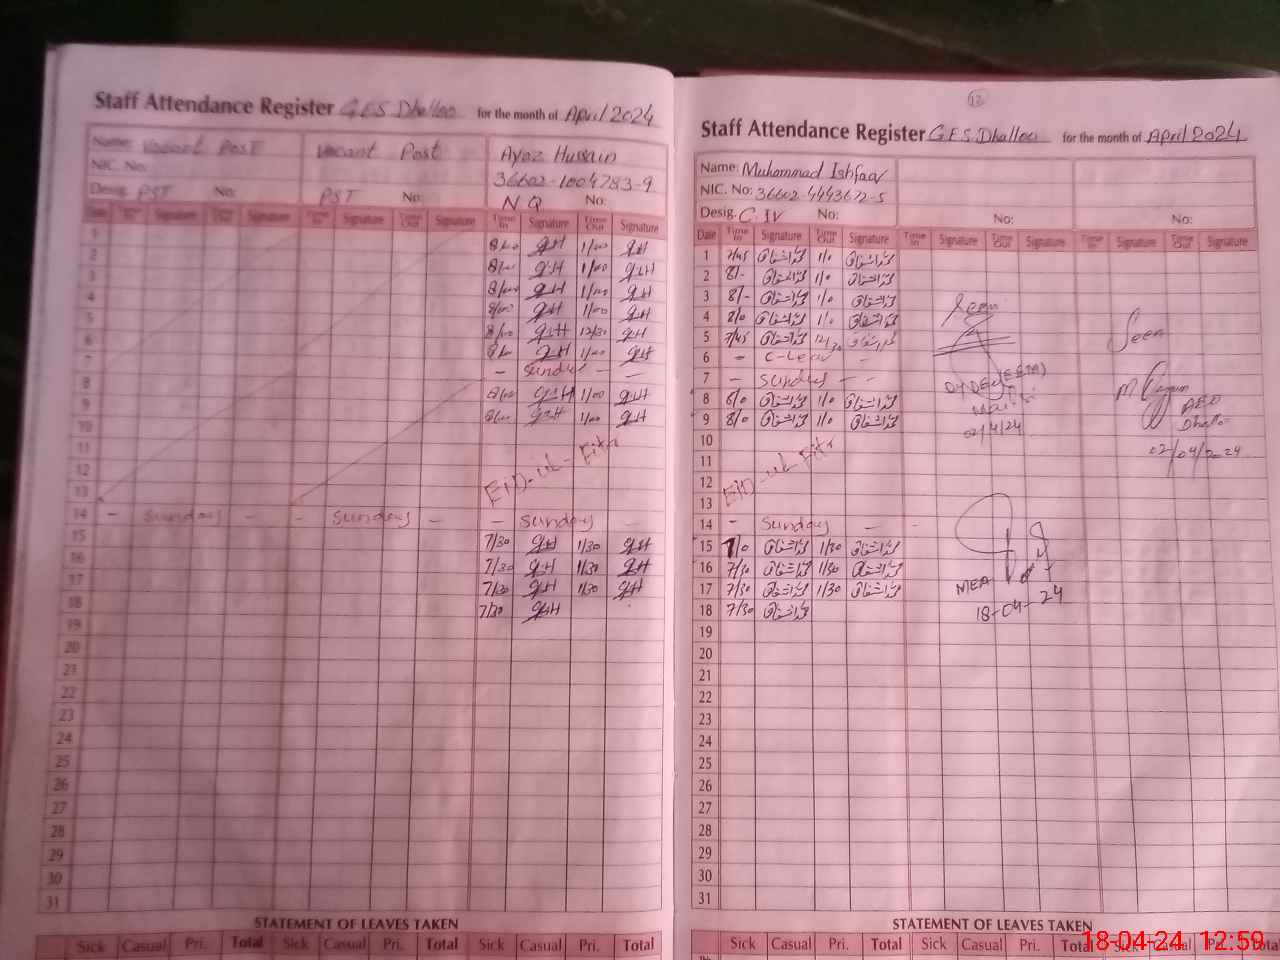 Staff Attendance Register GES Dhalloo for the month of April 2024
Name: Vacant Post Vacant Post Ayaz Hussain
NIC. No: 36602-1004783-9
Desig. PST No: PST No: N Q No:
Date Time In Signature Time Out Signature Time In Signature Time Out Signature Time In Signature Time Out Signature
1 8/00 1/00
2 8/00 1/00
3 8/00 1/00
4 8/00 1/00
5 8/00 12/30
6 8/00 1/00
7 - Sunday - -
8 8/00 1/00
9 8/00 1/00
10
11 EID-ul-Fitr
12
13
14 - Sunday - - Sunday - - Sunday -
15 7/30 1/30
16 7/30 1/30
17 7/30 1/30
18 7/30
19
20
21
22
23
24
25
26
27
28
29
30
31
STATEMENT OF LEAVES TAKEN
Sick Casual Pri. Total Sick Casual Pri. Total Sick Casual Pri. Total
12
Staff Attendance Register G.E.S. Dhalloo for the month of April 2024
Name: Muhammad Ishfaq
NIC. No: 36602-4443672-5
Desig. C IV No: No: No:
Date Time In Signature Time Out Signature Time In Signature Time Out Signature Time In Signature Time Out Signature
1 7/45 محمد اشفاق 1/0 محمد اشفاق
2 8/- محمد اشفاق 1/0 محمد اشفاق
3 8/- محمد اشفاق 1/0 محمد اشفاق
4 8/0 محمد اشفاق 1/0 محمد اشفاق
5 7/45 محمد اشفاق 12/30 محمد اشفاق
6 - C-Leav -
7 - Sunday - -
8 8/0 محمد اشفاق 1/0 محمد اشفاق
9 8/0 محمد اشفاق 1/0 محمد اشفاق
10
11
12 EID-ul Fitr
13
14 - Sunday - -
15 7/0 محمد اشفاق 1/30 محمد اشفاق
16 7/30 محمد اشفاق 1/30 محمد اشفاق
17 7/30 محمد اشفاق 1/30 محمد اشفاق
18 7/30 محمد اشفاق
19
20
21
22
23
24
25
26
27
28
29
30
31
Seen
DY DEO (EEM)
02/4/24
Seen
AEO
Dhalloo
02/04/2024
MEA
18-04-24
STATEMENT OF LEAVES TAKEN
Sick Casual Pri. Total Sick Casual Pri. Total Sick Casual Pri. Total
18-04-24 12:59